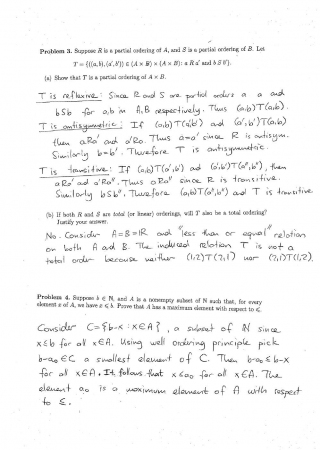 Problem 3. Suppose R is a partial ordering of A, and S is a partial ordering of B. Let
T = {((a, b), (a', b')) ∈ (A × B) × (A × B): a R a' and b S b'}.
(a) Show that T is a partial ordering of A × B.
T is reflexive: Since R and S are partial orders a R a and
b S b for a, b in A, B respectively. Thus (a,b)T(a,b).
T is antisymmetric: If (a,b)T(a',b') and (a',b')T(a,b)
then aRa' and a'Ra. Thus a=a' since R is antisym.
Similarly b=b'. Therefore T is antisymmetric.
T is transitive: If (a,b)T(a',b') and (a',b')T(a'',b''), then
aRa' and a'Ra''. Thus aRa'' since R is transitive.
Similarly bSb''. Therefore (a,b)T(a'',b'') and T is transitive
(b) If both R and S are total (or linear) orderings, will T also be a total ordering?
Justify your answer.
No. Consider A=B=ℝ and "less than or equal" relation
on both A and B. The induced relation T is not a
total order because neither (1,2)T(2,1) nor (2,1)T(1,2).
Problem 4. Suppose b ∈ ℕ, and A is a nonempty subset of ℕ such that, for every
element x of A, we have x ≤ b. Prove that A has a maximum element with respect to ≤.
Consider C={b-x : x∈A}, a subset of ℕ since
x≤b for all x∈A. Using well ordering principle pick
b-a₀∈C a smallest element of C. Then b-a₀ ≤ b-x
for all x∈A. It follows that x≤a₀ for all x∈A. The
element a₀ is a maximum element of A with respect
to ≤.